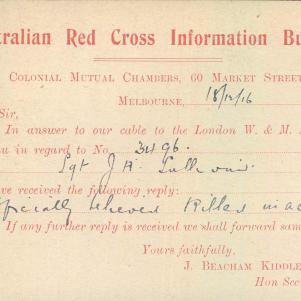 tralian Red Cross Information Bu
COLONIAL MUTUAL CHAMBERS, 60 MARKET STREET
MELBOURNE, 18/12/16
Sir,
In answer to our cable to the London W. & M.
u in regard to No. 3496.
Sgt J. H.
ve received the following reply:
fficially believed Killed in ac
If any further reply is received we shall forward sam
Yours faithfully,
J. BEACHAM KIDDLE
Hon Sec